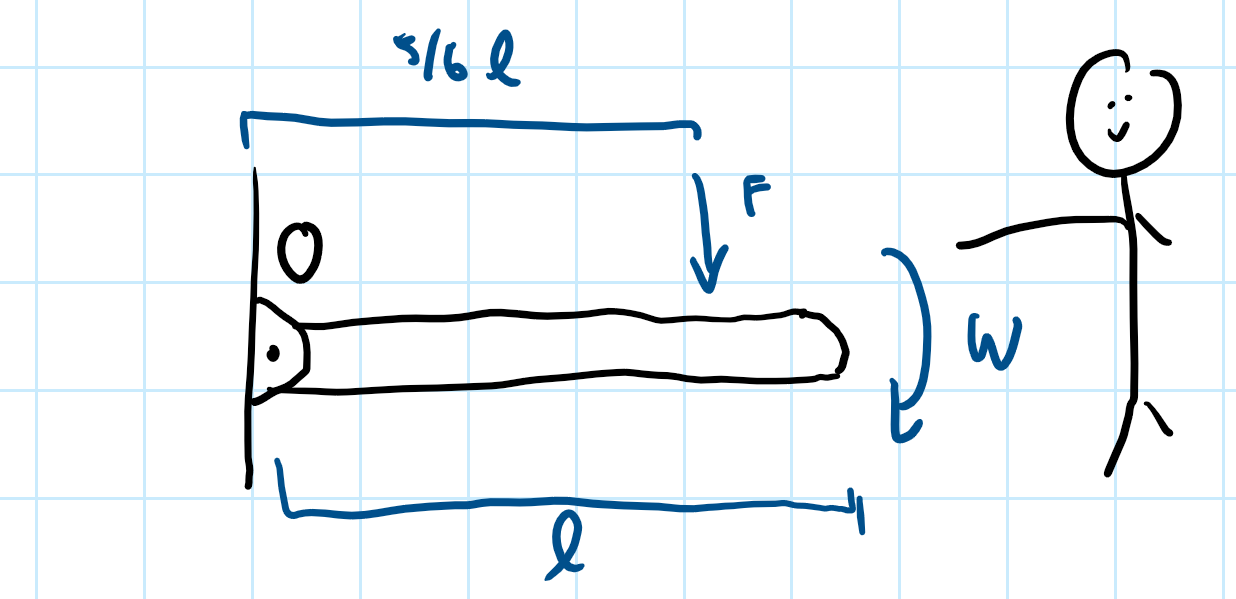 5/6 l
F
O
W
l